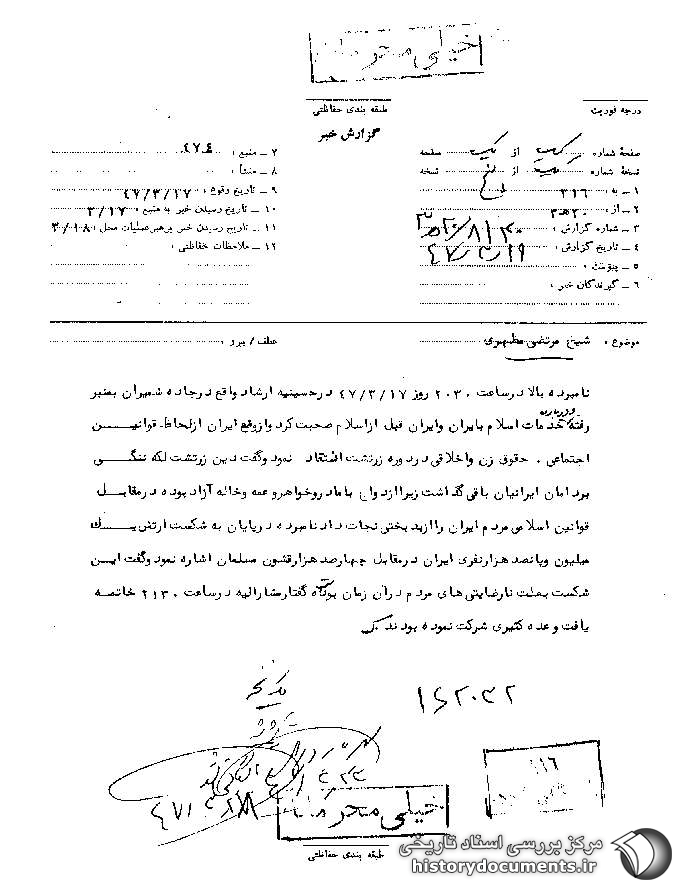 خیلی محرمانه
درجه فوریت
طبقه بندی حفاظتی
گزارش خبر
صفحهٔ شماره یک از یک صفحه
نسخهٔ شماره از نسخه
۱ ـ به : ۳۱۶
۲ ـ از : ۲۰ ه ۳
۳ ـ شماره گزارش :
۴ ـ تاریخ گزارش : ۴۷/۳/۱۹
۵ ـ پیوست :
۶ ـ گیرندگان خبر :
۷ ـ منبع :
۸ ـ منشأ :
۹ ـ تاریخ وقوع : ۴۷/۳/۱۷
۱۰ ـ تاریخ رسیدن خبر به منبع : ۳/۱۷
۱۱ ـ تاریخ رسیدن خبر برهبر عملیات محل : ۳/۱۸
۱۲ ـ ملاحظات حفاظتی :
موضوع : شیخ مرتضی مطهری
عطف / پیرو :
نامبرده بالا در ساعت ۲۰۳۰ روز ۴۷/۳/۱۷ در حسینیه ارشاد واقع در جاده شمیران بمنبر
رفته و درباره خدمات اسلام بایران و ایران قبل از اسلام صحبت کرد و از وقع ایران از لحاظ قوانین
اجتماعی ، حقوق زن و اخلاقی در دوره زرتشت انتقاد نمود و گفت دین زرتشت لکه ننگی
بر دامان ایرانیان باقی گذاشت زیرا ازدواج با مادر و خواهر و عمه و خاله آزاد بوده در مقابل
قوانین اسلامی مردم ایران را از بدبختی نجات داد نامبرده در پایان به شکست ارتش یک
میلیون و پانصد هزار نفری ایران در مقابل چهار صد هزار قشون مسلمان اشاره نمود و گفت این
شکست بعلت نارضایتی های مردم در آن زمان بود که گفتار مشارالیه در ساعت ۲۱۳۰ خاتمه
یافت و عده کثیری شرکت نموده بودند .
۱۶۲۰۳۲
خیلی محرمانه
طبقه بندی حفاظتی
مرکز بررسی اسناد تاریخی
historydocuments.ir